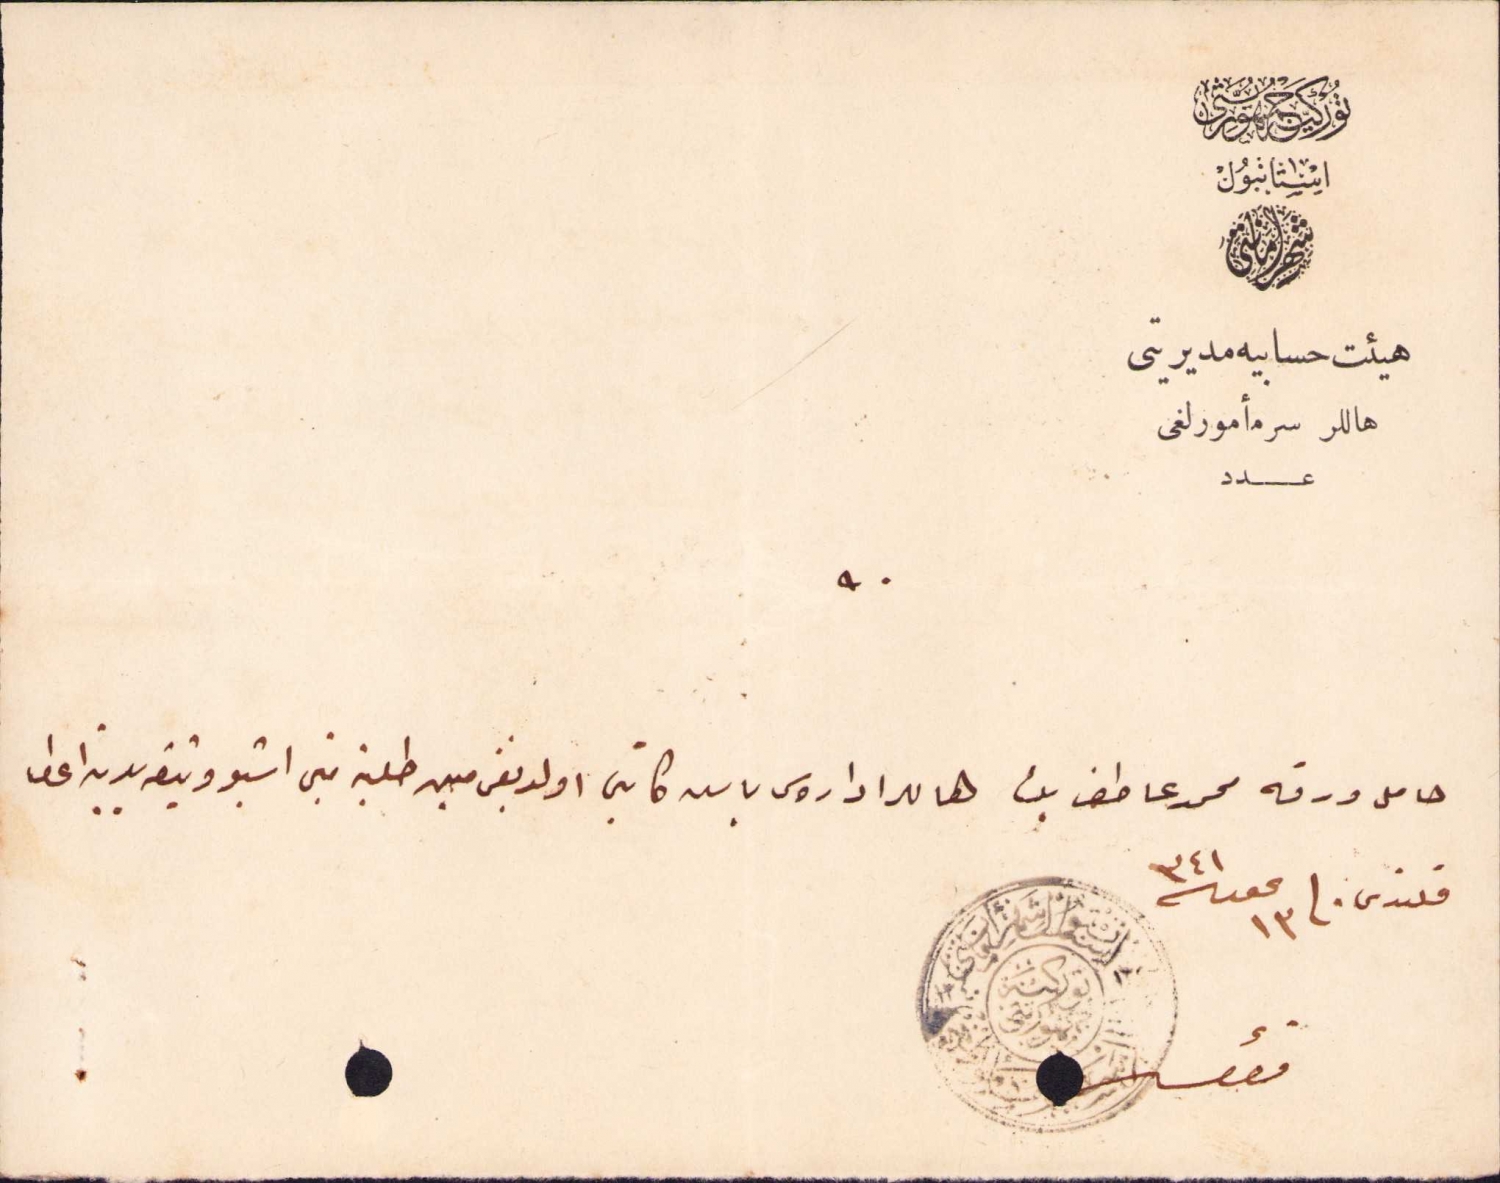 توركيه جمهوريتى
استانبول
شهر امانتى
هيئت حسابيه مديريتى
هاللر سرمأمورلغى
عدد
حامل ورقه محمد عاطف بك هاللر اداره‌سى باش كاتبى اولديغنى مبين طلبنه مبنى اشبو وثيقه يدينه اعطا
قلندى ١٣ ٣٤١
استانبول شهر امانتى
توركيه جمهوريتى